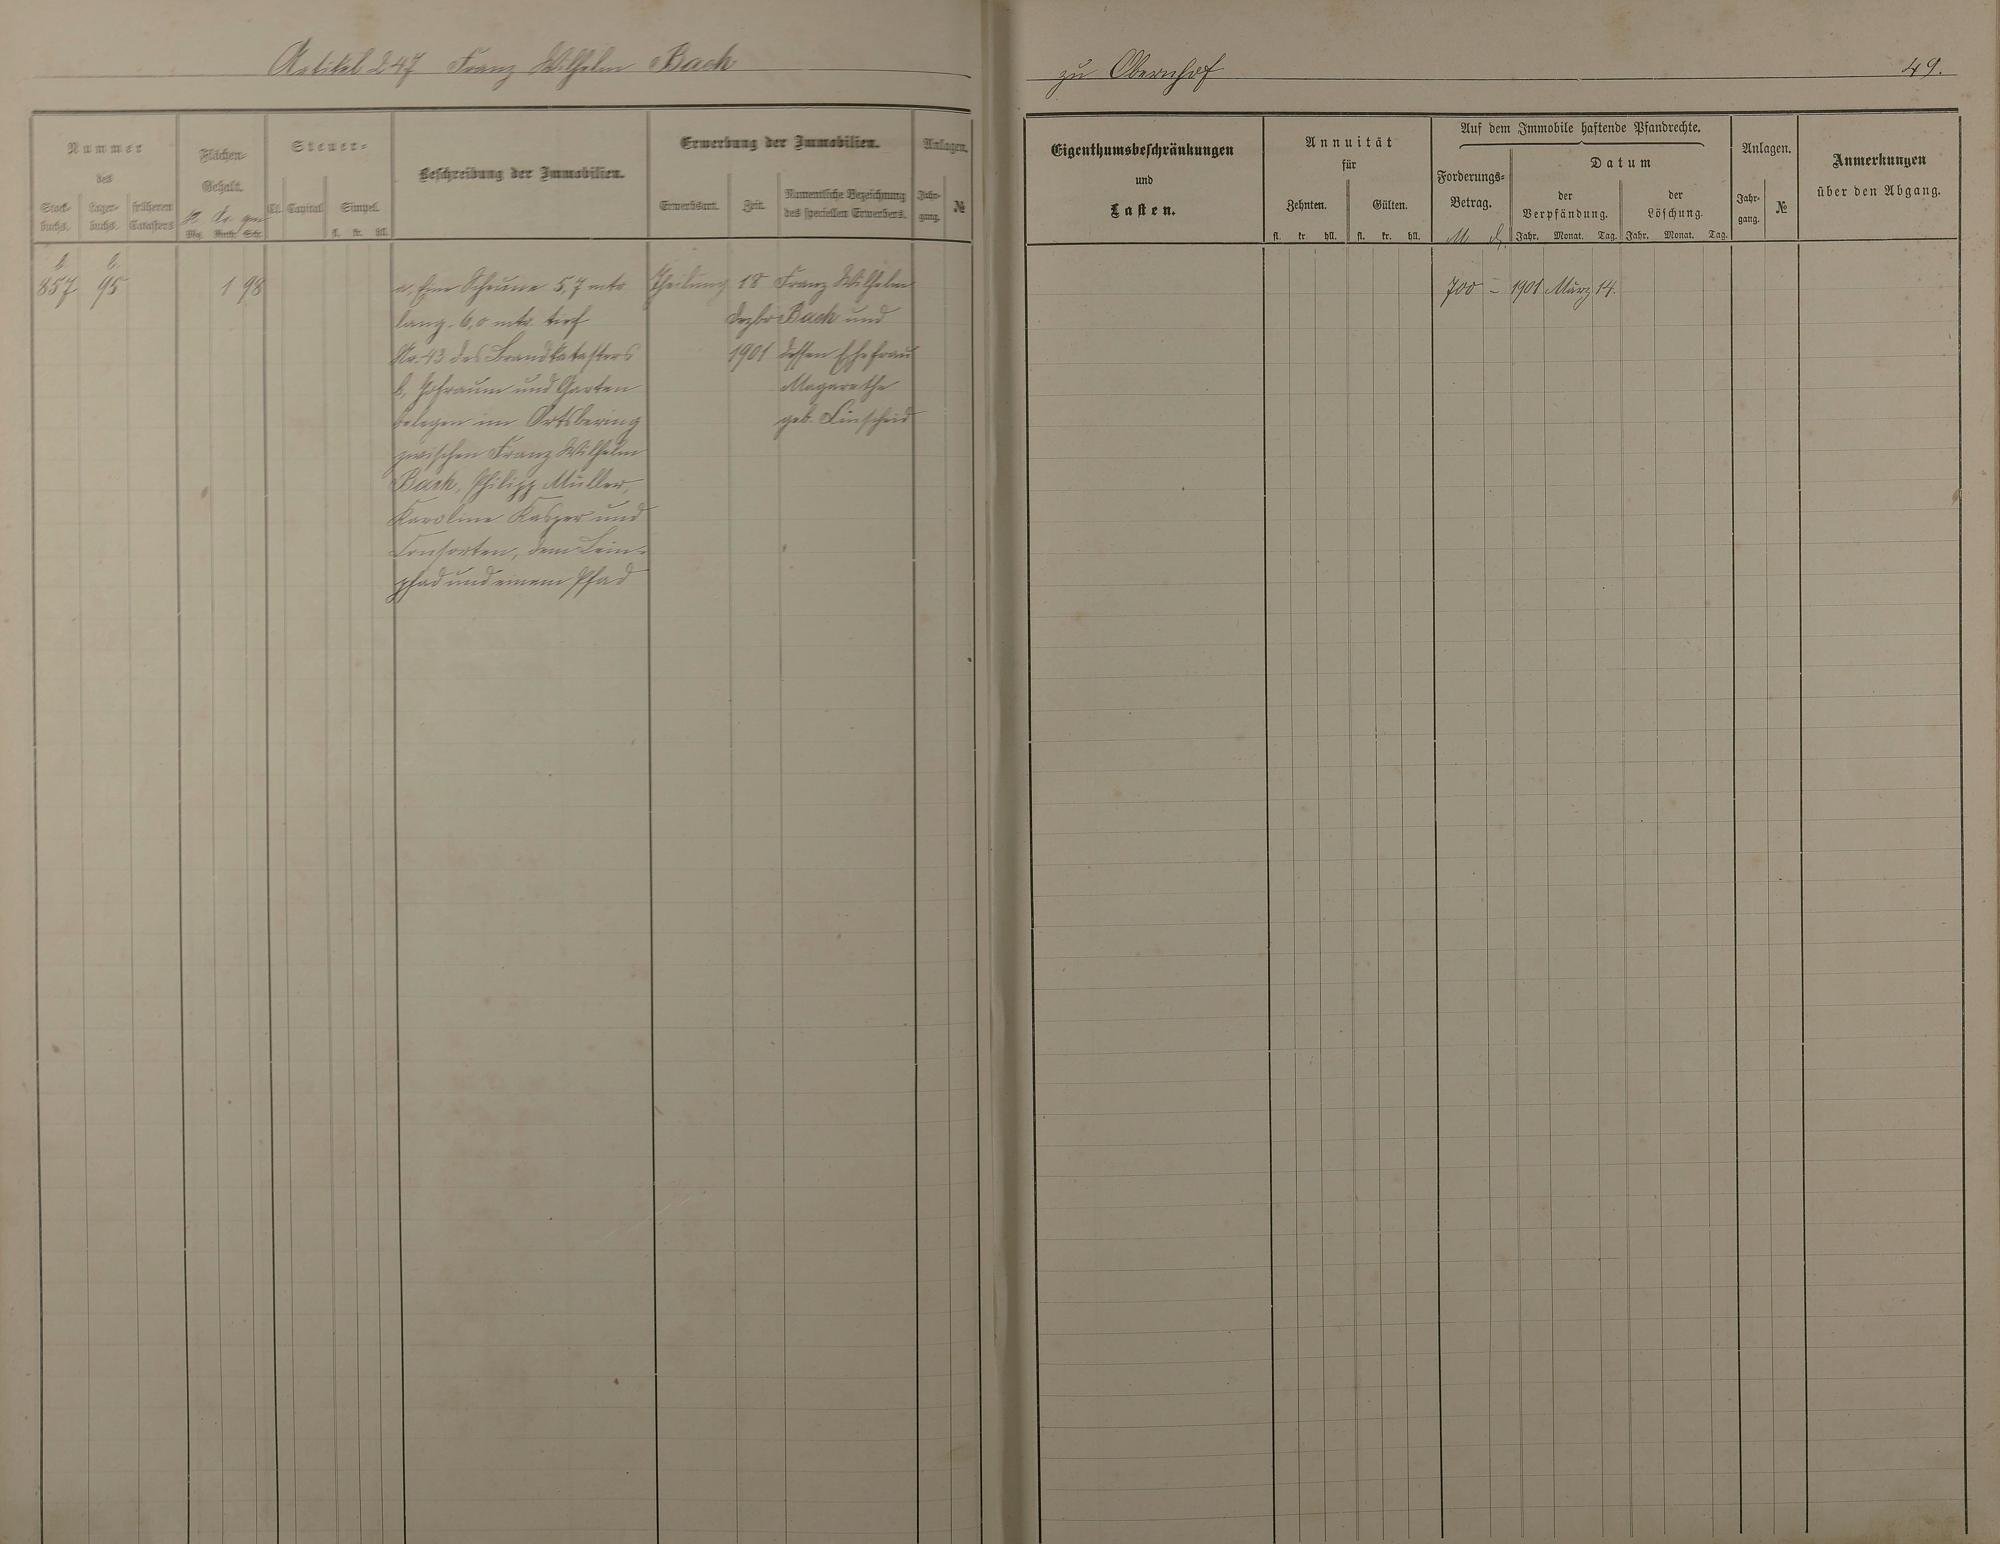 Artikel 247 Franz Wilhelm Bach
zu Obernhof 49.
Nummer
des
Stock-
buchs.
Lager-
buchs.
früheren
Catasters
Flächen-
Gehalt.
Mg. Ruth. Sch.
Steuer-
Cl. Capital Simpel.
fl. kr. hll.
Beschreibung der Immobilien.
Erwerbung der Immobilien.
Erwerbsart. Zeit.
Namentliche Bezeichnung
des speciellen Erwerbers.
Anlagen.
Jahr-
gang.
№
b b
857 95 1 98
a, Eine Scheune 5,7 mtr
lang, 6,0 mtr. tief
Nr. 43 des Brandkatasters
b, Hofraum und Garten
belegen im Ortsbering
zwischen Franz Wilhelm
Bach, Philipp Müller,
Karoline Kasper und
Consorten, dem Lein-
pfad und einem Pfad
Theilung
18
Dezbr
1901
Franz Wilhelm
Bach und
dessen Ehefrau
Magarethe
geb. Linscheid
Eigenthumsbeschränkungen
und
Lasten.
Annuität
für
Zehnten. Gülten.
fl. kr. hll. fl. kr. hll.
Auf dem Immobile haftende Pfandrechte.
Forderungs-
Betrag.
M. ₰.
Datum
der
Verpfändung.
der
Löschung.
Jahr. Monat. Tag. Jahr. Monat. Tag.
Anlagen.
Jahr-
gang.
№
Anmerkungen
über den Abgang.
700 – 1901 März 14.